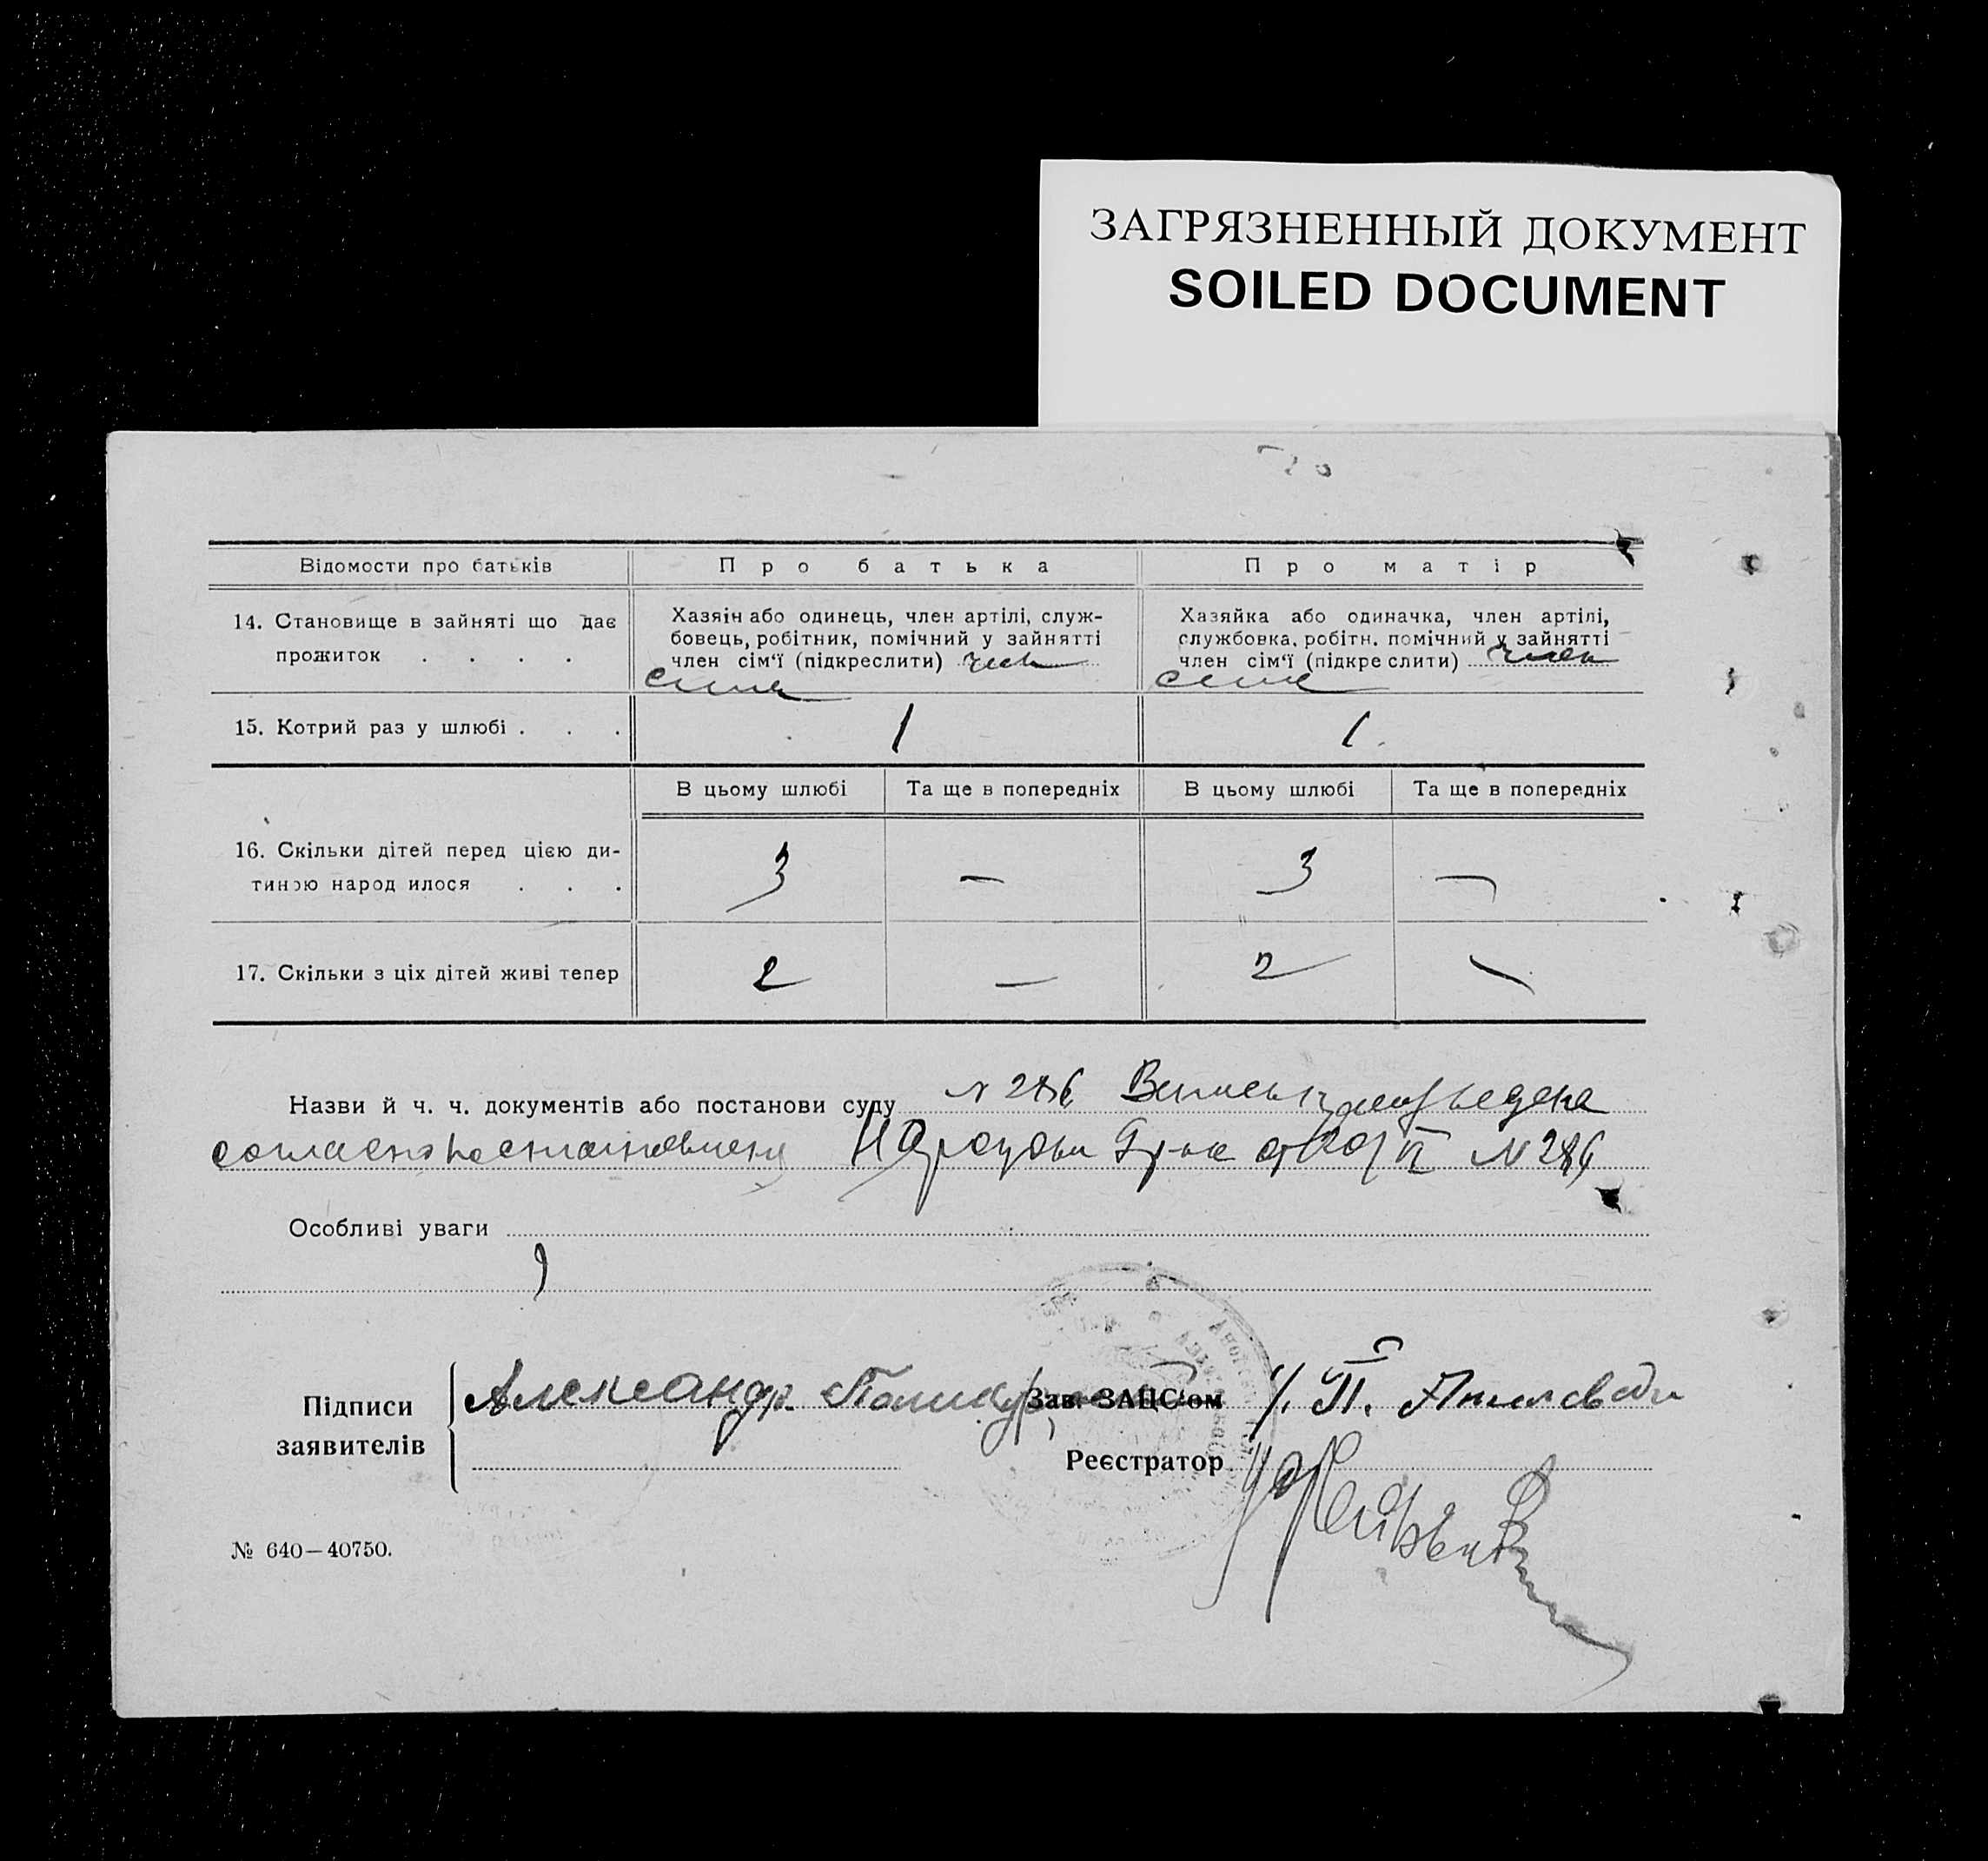 ЗАГРЯЗНЕННЫЙ ДОКУМЕНТ
SOILED DOCUMENT
Відомости про батьків
Про батька
Про матір
14. Становище в зайняті що дає
прожиток . . . .
Хазяїн або одинець, член артілі, служ-
бовець, робітник, помічний у зайнятті
член сім'ї (підкреслити) член
семи
Хазяйка або одиначка, член артілі,
службовка, робітн. помічний у зайнятті
член сім'ї (підкреслити) член
семи
15. Котрий раз у шлюбі . . .
1
1.
В цьому шлюбі
Та ще в попередніх
В цьому шлюбі
Та ще в попередніх
16. Скільки дітей перед цією ди-
тиною народилося . . .
3
—
3
—
17. Скільки з ціх дітей живі тепер
2
—
2
—
Назви й ч. ч. документів або постанови суду N 286
согласно постановления N 286
Особливі уваги
Підписи
заявителів
Александр
Зав. ЗАЦС'ом
Реєстратор
№ 640—40750.